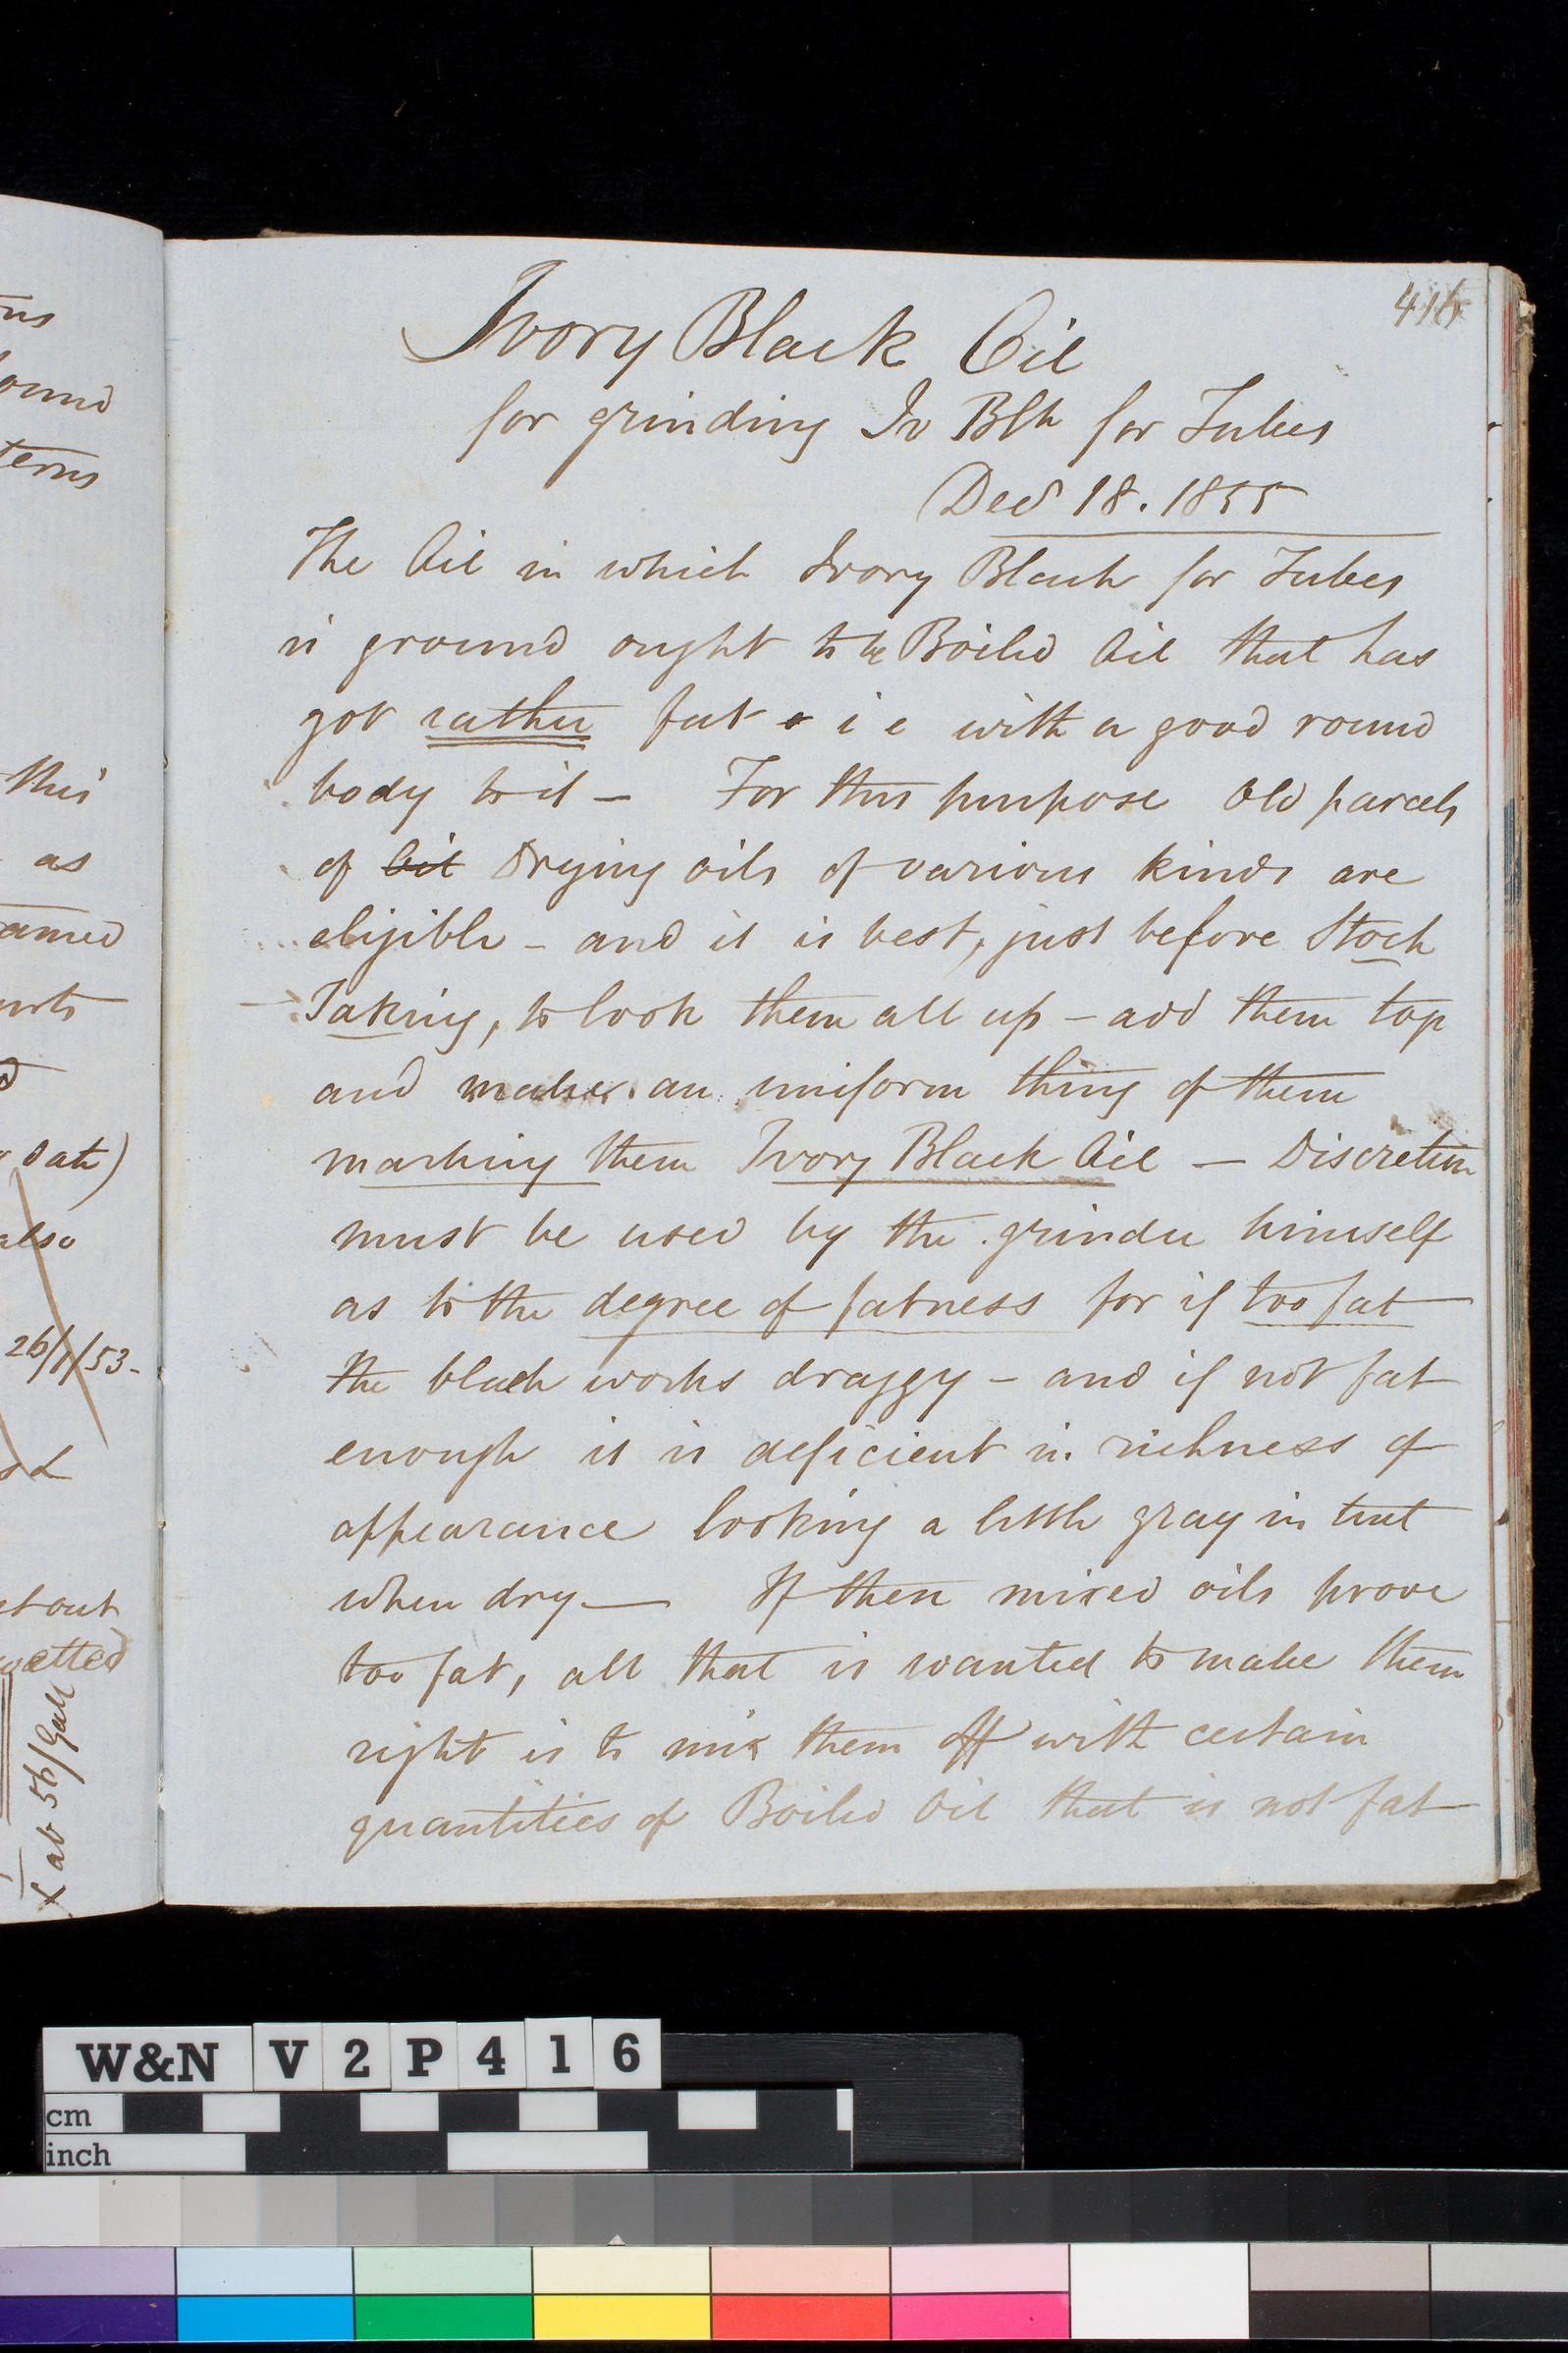 ns
ound
terns
this
as
amed
d
date)
also
26/1/53-
out
etted
X ab 56/Gall
416
Ivory Black Oil
for grinding Iv Blk for Tubes
Decr 18. 1855
The Oil in which Ivory Black for Tubes
is ground ought to be Boiled Oil that has
got rather fat i e with a good round
body to it – For this purpose old parcels
of Oil Drying oils of various kinds are
eligible – and it is best, just before Stock
Taking, to look them all up – add them top
and make an uniform thing of them
marking them Ivory Black Oil — Discretion
must be used by the grinder himself
as to the degree of fatness for if too fat
the black works draggy – and if not fat
enough it is deficient in richness of
appearance looking a little gray in tint
when dry — If then mixed oils prove
too fat, all that is wanted to make them
right is to mix them off with certain
quantities of Boiled Oil that is not fat
W&N V2P416
cm
inch